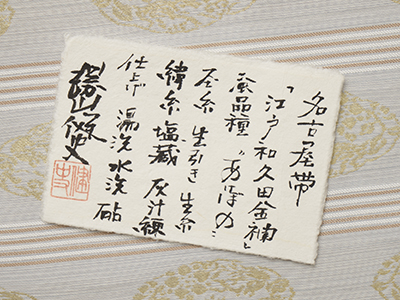 名古屋帯
「江戸和久田金襴」
蚕品種 〝あけぼの〟
経糸 生引き生糸
緯糸 塩蔵 灰汁練
仕上げ 湯洗 水洗 砧
勝山健史
健史